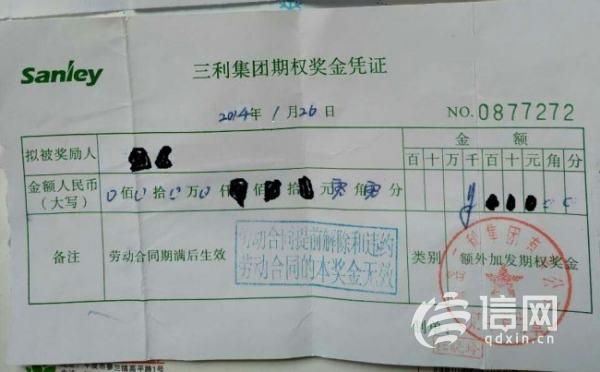 Sanley
三利集团期权奖金凭证
2014年 1月 26日
NO.0877272
拟被奖励人
金额
百十万千百十元角分
金额人民币
(大写)
0佰0拾0万0仟 佰 拾 元零角零分
备注
劳动合同期满后生效
劳动合同提前解除和违约
劳动合同的本奖金无效
类别
额外加发期权奖金
三利集团
信网
qdxin.cn